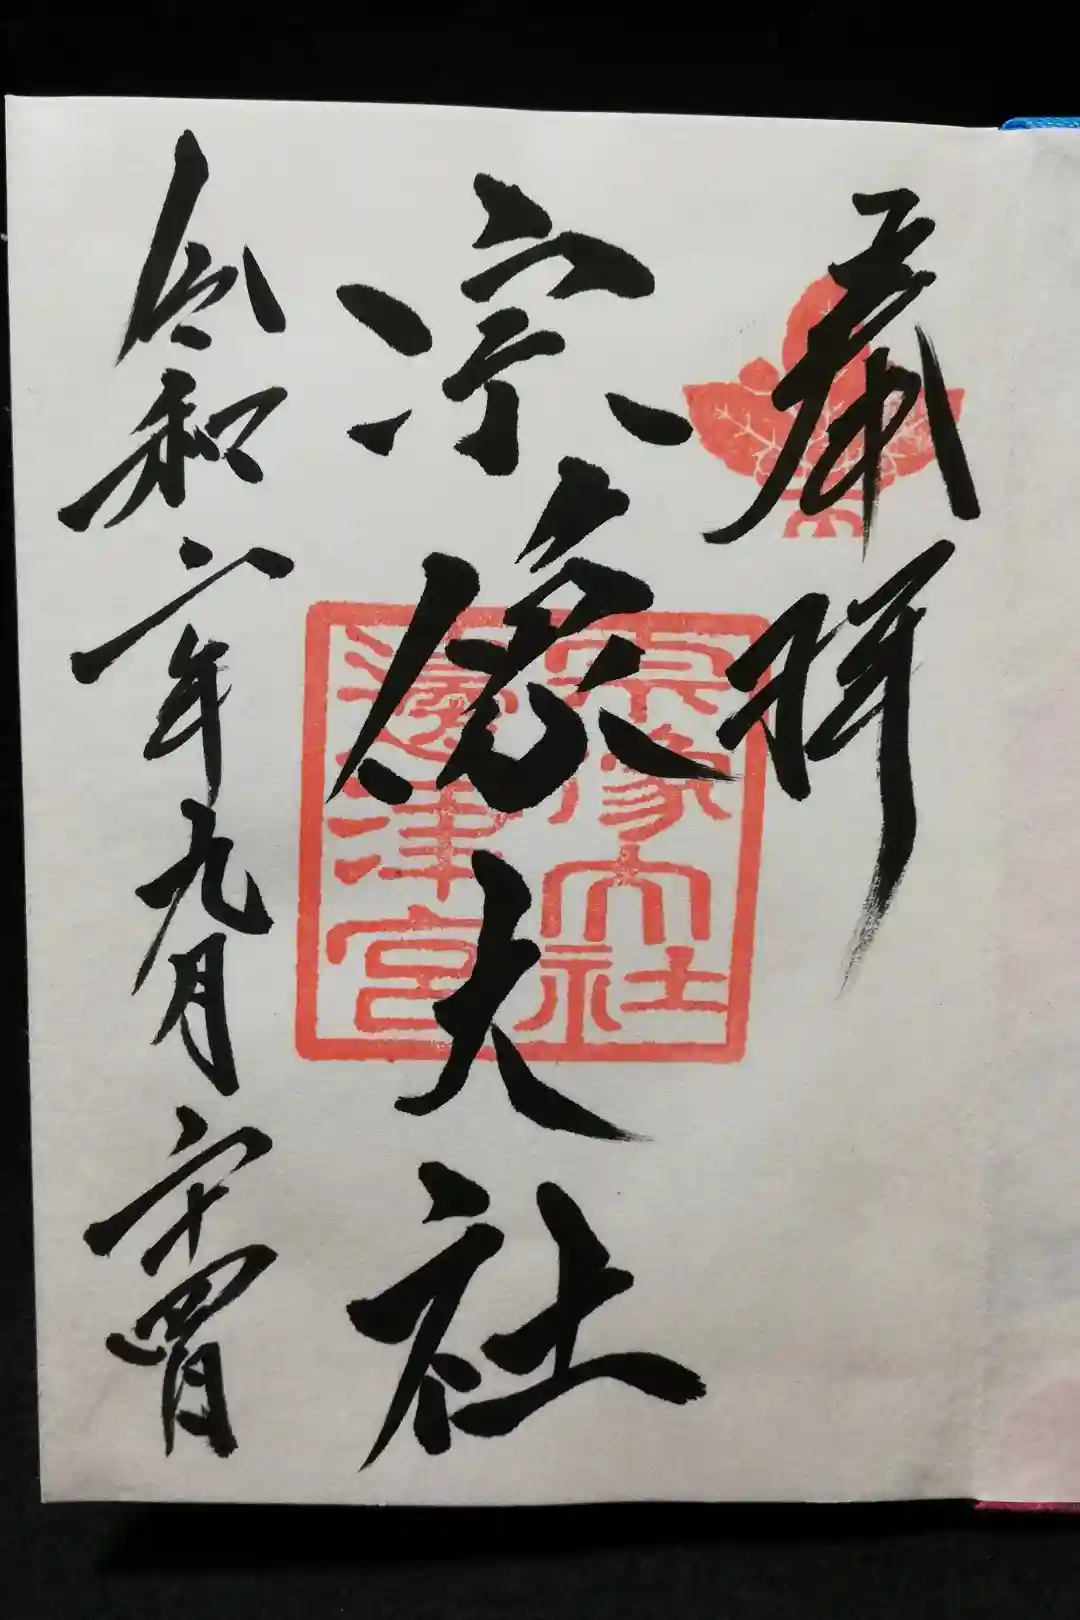 奉拝
宗像大社
令和二年九月二十四日
宗像大社
邊津宮